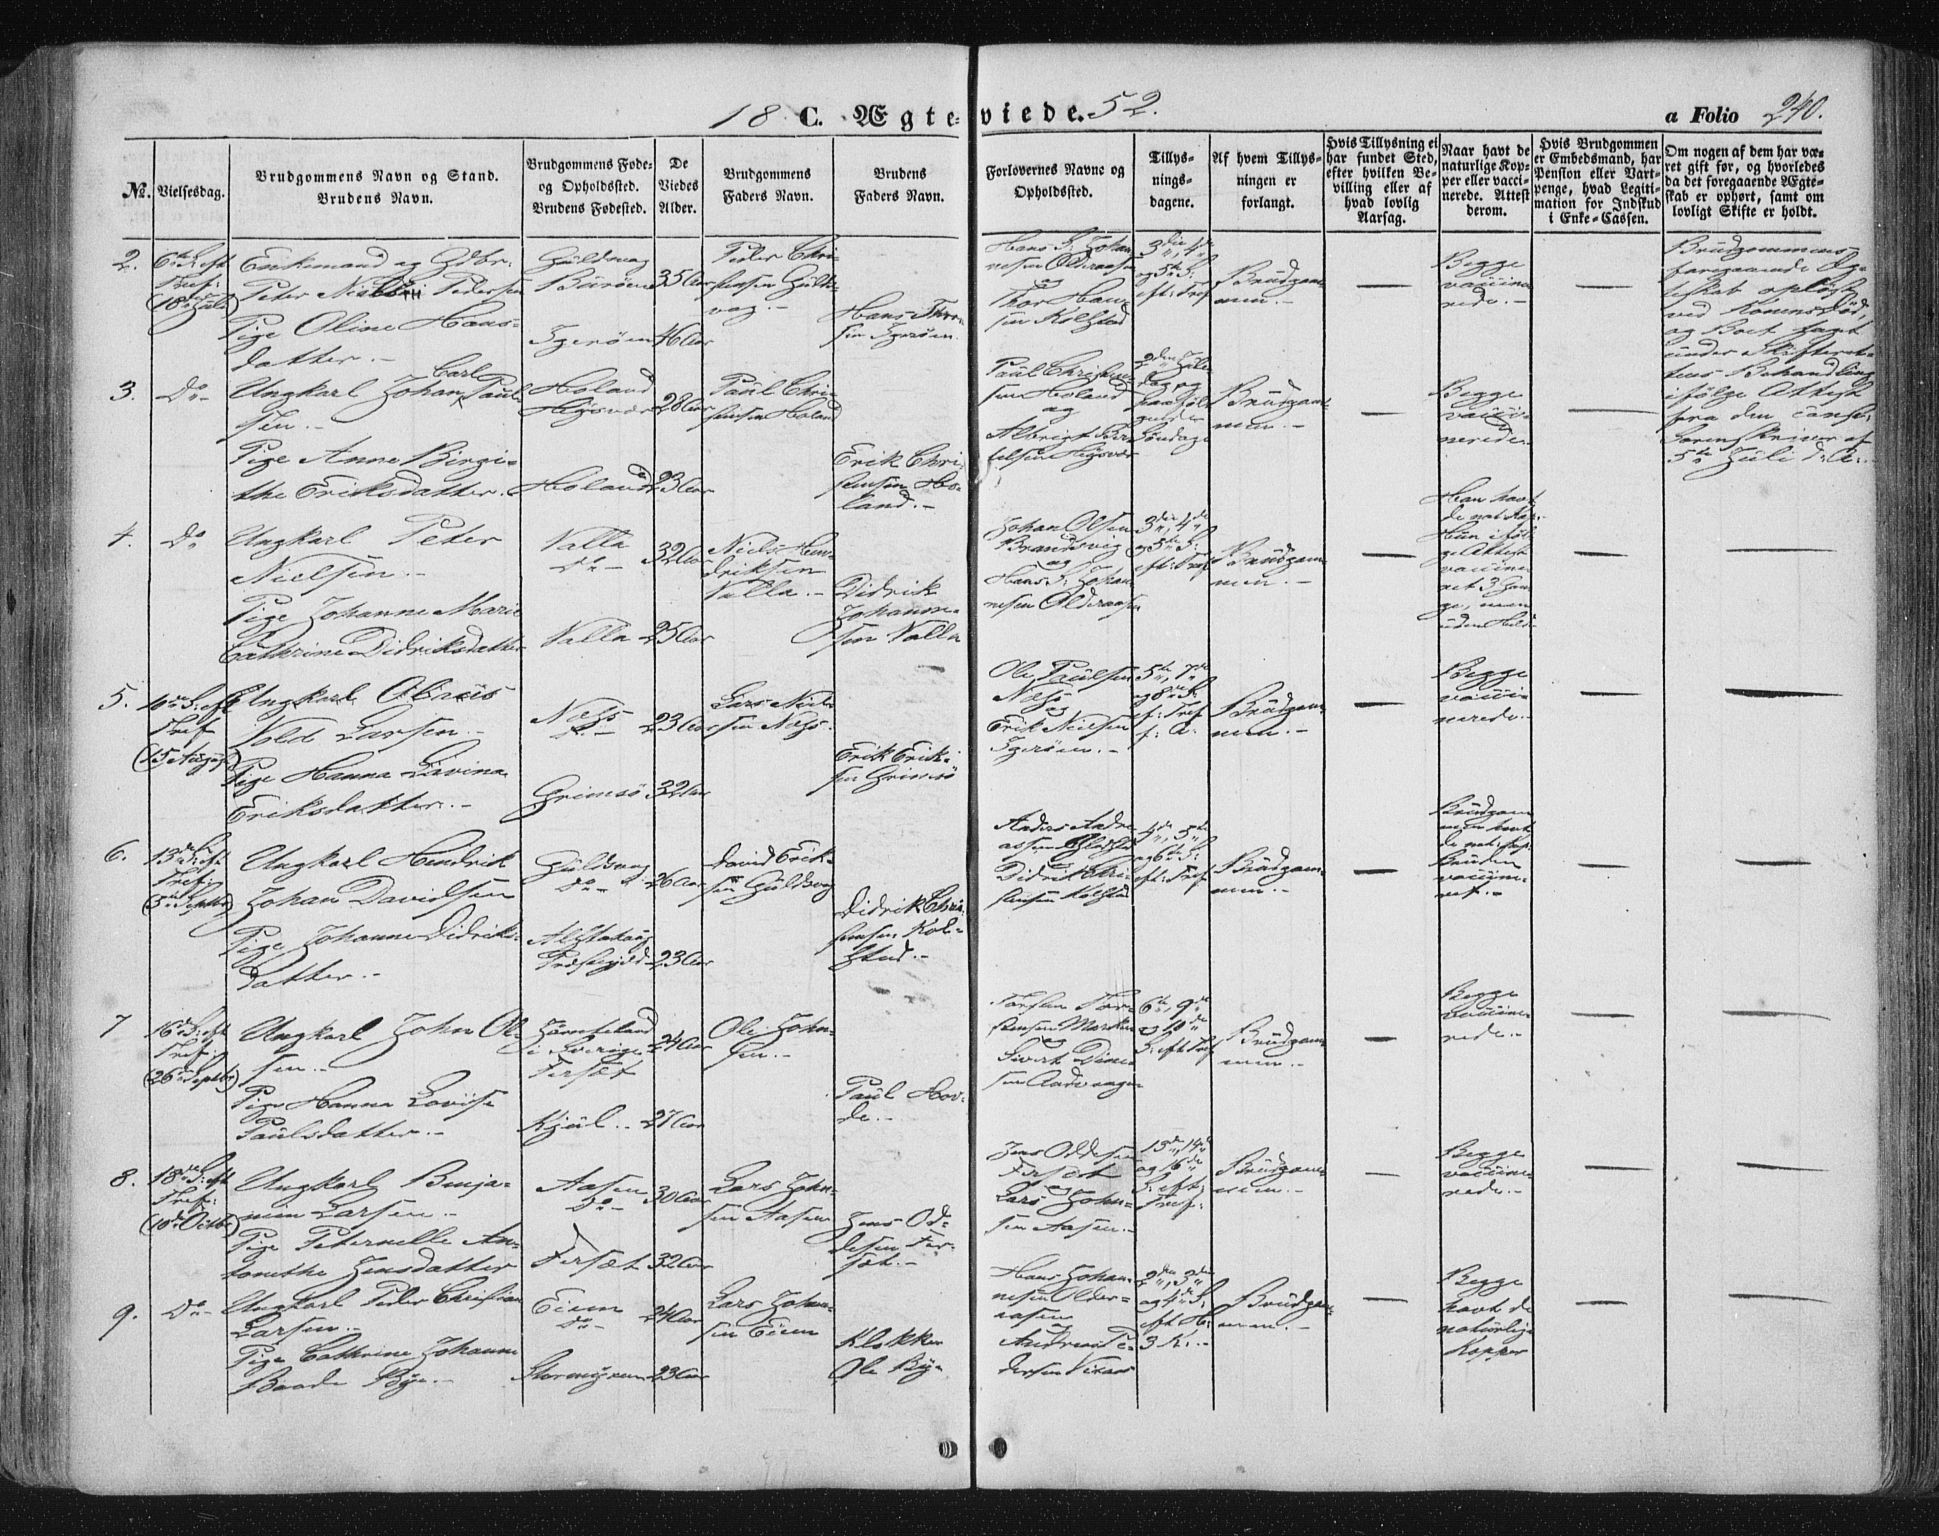 18 C. Ægteviede. 52.
a Folio 240.
No.
Vielsesdag.
Brudgommens Navn og Stand.
Brudens Navn.
Brudgommens Føde-
og Opholdssted.
Brudens Fødested.
De
Viedes
Alder.
Brudgommens
Faders Navn.
Brudens
Faders Navn.
Forlovernes Navne og
Opholdssted.
Tillys-
nings-
dagene.
Af hvem Tillys-
ningen er
forlangt.
Hvis Tillysning ei
har fundet Sted,
efter hvilken Be-
villing eller af
hvad lovlig
Aarsag.
Naar havt de
naturlige Kop-
per eller vacci-
nerede. Attest
derom.
Hvis Brudgommen
er Embedsmand, har
Pension eller Vart-
penge, hvad Legiti-
mation for Indskud
i Enke-Cassen.
Om nogen af dem har væ-
ret gift før, og hvorledes
da det foregaaende Ægte-
skab er ophørt, samt om
lovligt Skifte er holdt.
2.
6te S. eft
Tref.
(18de Juli)
Enkemand og Gdbr.
Peter Pedersen
Pige Oline Hans-
datter.-
Guldsvag
Buröen
Igerøen
35 Aar
46 Aar
Peder Chri-
stensen Guld-
vag.-
Hans Thor-
sen Igerøen.
Hans J. Johan-
nesen Olderaasen
og
Thor Han-
sen Kolstad
3die 4de
og 5te S:
eft: Tref
Brudgom-
men.-
Begge
vaccine-
rede.-
Brudgommens
foregaaende Æg-
teskab opløst
ved Konens Död,
og Boet tagt
under Skifteret-
tens Behandling
ifölge Attest
fra den const:
Sorenskriver af
5te Juli d: A:.-
3.
Do-
Ungkarl Johan Carl Paul-
sen.-
Pige Anne Birgi-
the Eriksdatter.
Holand
Høysvær
Holand
28 Aar
23 Aar
Paul Chri-
stensen Holand
Erik Chri-
stensen Ho-
land.-
Paul Christen-
sen Holand
og
Albrigt Ber-
telsen Høysvær
2den Jule-
dag og
paafölg-
ende
Söndage
Brudgom-
men.-
Begge
vacci-
nerede.
4.
Do
Ungkarl Peter
Nielsen.-
Pige Johanne Marie
Cathrine Didriksdatter
Valla
Do-
Valla
32 Aar
25 Aar
Niels Hen-
driksen
Valla.-
Didrik
Johanne-
sen Valla
Johan Olsen
Brandsvig
og
Hans J: Johan-
nesen Olderaasen
3die, 4de
og 5te S:
eft: Tref
Brudgom-
men.-
Han havt
de nat: Kop.-
Hun iföl-
ge Attest
vaccine-
ret 3 Gan-
ge, men
uden Held
5.
10de S: eft
Tref
(15 August)
Ungkarl Abrus
Vold Larsen.-
Pige Hanna Lovina
Eriksdatter.-
Næss
Do-
Grimsö
23 Aar
32 Aar
Lars Niel-
sen Næss.
Erik Erik-
sen Grimsö
Ole Paulsen
Næss
og
Erik Nielsen
Igerøen.-
5te, 7de
og 8de S:
ef: Tref
f: A.
Brudgom-
men.-
Begge
vacci-
nerede.-
6.
13de S: eft
Tref:
(5te Septbr)
Ungkarl Hendrik
Johan Davidsen
Pige Johanne Didriks-
datter.-
Guldsvag
Do-
Alstahoug
Præstegjeld
26 Aar
23 Aar
David Erik-
sen Guldsvag
Didrik Chri-
stensen Kol-
stad.-
Anders Andre-
assen
Didrik Chri-
stensen Kolstad
4de, 5te
og 6te S:
eft: Tref
Brudgom-
men.-
Brudgom-
men havt
de nat: Kop:
Bruden
vaccine-
ret.-
7
16de S: eft
Tref.
(26de Septbr)
Ungkarl John Ol-
sen.-
Pige Hanna Lovise
Paulsdatter.-
Jämteland
i Sverige
Forsæt
Kjul.-
24 Aar
27 Aar
Ole John-
sen.-
Paul Hov-
de.-
Torsten Tor-
stensen Marken
og
Sivert Dine-
sen Aadvangen
6te, 9de
og 10de
S: eft Tref
Brudgom-
men.-
Begge
vaccine-
rede.-
8.
18de S: eft
Tref:
(10de Octbr)
Ungkarl Benja-
min Larsen.-
Pige Peternelle An-
tonethe Jensdatter
Aasen
Do-
Forsæt
30 Aar
32 Aar
Lars John-
sen Aasen
Jens Od-
desen For-
sæt.-
Jens Oddesen
Forsæt
og
Lars John-
sen Aasen.-
13de, 14de
og 16de
S: eft:
Tref:
Brudgom-
men.-
Begge
vaccine-
rede.-
9.
Do-
Ungkarl Peder Christian
Larsen.-
Pige Cathrine Johanne
Baade Bye.-
Eiem
Do-
24 Aar
23 Aar
Lars John-
sen Eiem
Klokker
Ole Bÿe.
Hans Johan-
nesen Older-
aasen
og
Andreas Pe-
dersen
2den, 3die
og 4de S:
eft H:
3 K.-
Brudgom-
men.-
Begge
havt de
naturlige
Kopper